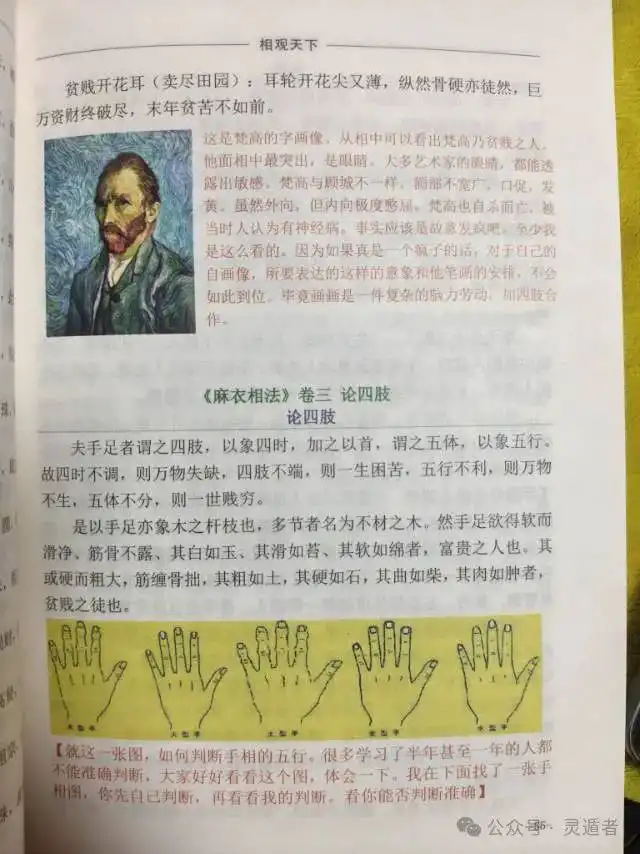 相观天下
贫贱开花耳（卖尽田园）：耳轮开花尖又薄，纵然骨硬亦徒然，巨
万资财终破尽，末年贫苦不如前。
这是梵高的字画像，从相中可以看出梵高乃贫贱之人。
他面相中最突出，是眼睛。大多艺术家的眼睛，都能透
露出敏感。梵高与顾城不一样。额部不宽广，口促，发
黄。虽然外向，但内向极度憋屈。梵高也自杀而亡，被
当时人认为有神经病。事实应该是故意发疯吧。至少我
是这么看的。因为如果真是一个疯子的话，对于自己的
自画像，所要表达的这样的意象和他笔画的安排，不会
如此到位。毕竟画画是一件复杂的脑力劳动，加四肢合
作。
《麻衣相法》卷三 论四肢
论四肢
夫手足者谓之四肢，以象四时，加之以首，谓之五体，以象五行。
故四时不调，则万物失缺，四肢不端，则一生困苦，五行不利，则万物
不生，五体不分，则一世贱穷。
是以手足亦象木之杆枝也，多节者名为不材之木。然手足欲得软而
滑净、筋骨不露、其白如玉、其滑如苔、其软如绵者，富贵之人也。其
或硬而粗大，筋缠骨拙，其粗如土，其硬如石，其曲如柴，其肉如肿者，
贫贱之徒也。
【就这一张图，如何判断手相的五行。很多学习了半年甚至一年的人都
不能准确判断，大家好好看看这个图，体会一下。我在下面找了一张手
相图，你先自己判断，再看看我的判断。看你能否判断准确】
公众号·灵遁者